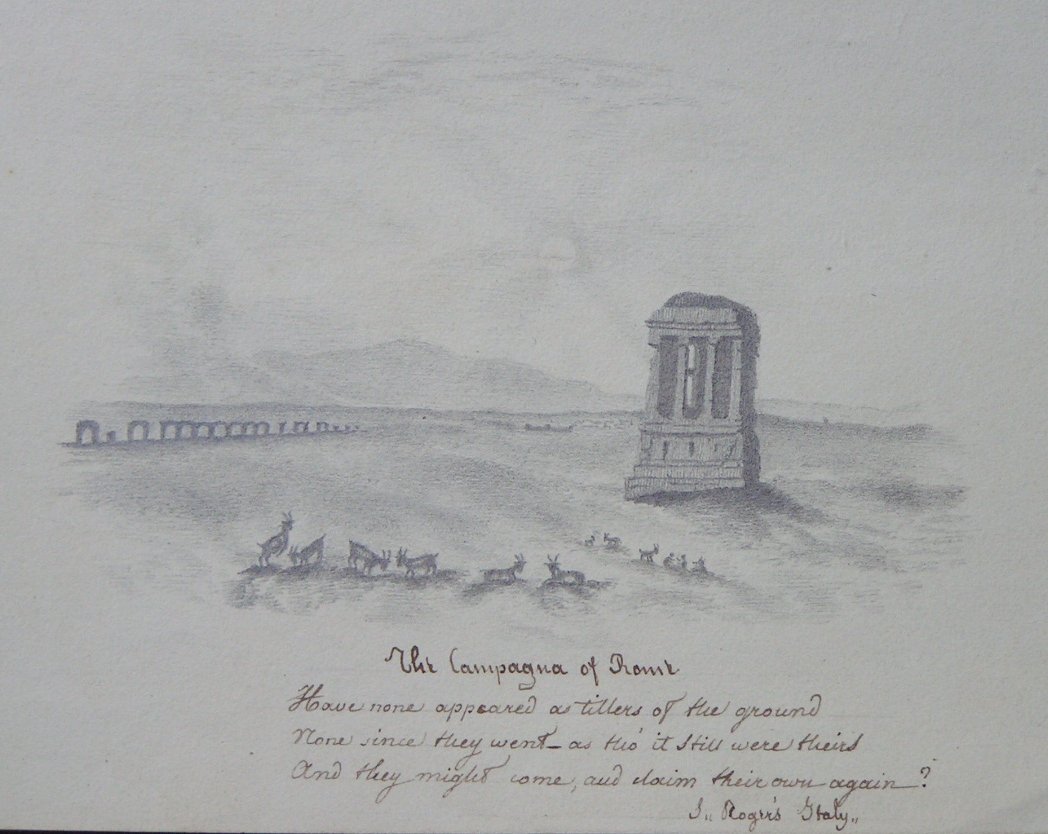 The Campagna of Rome
Have none appeared as tillers of the ground
None since they went - as tho' it still were theirs
And they might come, and claim their own again?
In Roger's Italy